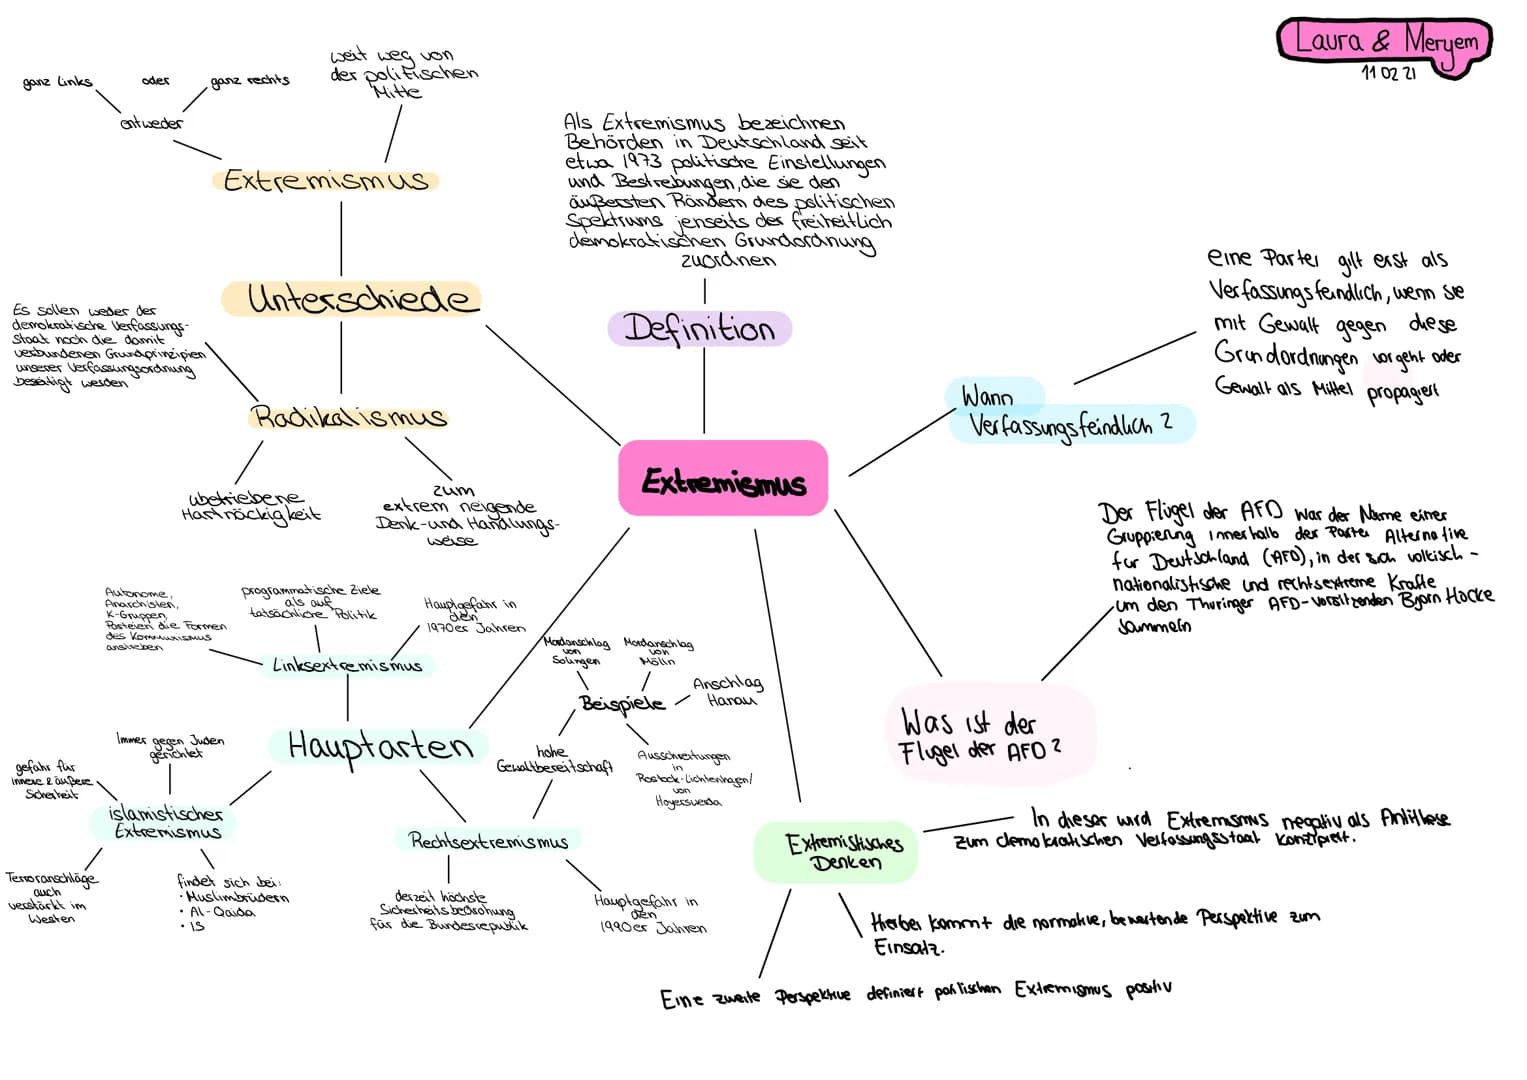 Laura & Meryem
11 02 21
ganz Links
oder
ganz rechts
entweder
weit weg von
der politischen
Mitte
Extremismus
Unterschiede
Es sollen weder der
demokratische Verfassungs-
staat noch die damit
verbundenen Grundprinzipien
unserer Verfassungsordnung
beseitigt werden
Radikalismus
übetriebene
Hartnäckigkeit
zum
extrem neigende
Denk-und Handlungs-
weise
Als Extremismus bezeichnen
Behörden in Deutschland seit
etwa 1973 politische Einstellungen
und Bestrebungen, die sie den
äußersten Rändern des politischen
Spektrums jenseits der freiheitlich
demokratischen Grundordnung
zuordnen
Definition
Extremismus
Wann
Verfassungsfeindlich?
eine Partei gilt erst als
Verfassungsfeindlich, wenn sie
mit Gewalt gegen diese
Grundordnungen vorgeht oder
Gewalt als Mittel propagiert
Der Flügel der AFD war der Name einer
Gruppierung innerhalb der Partei Alternative
für Deutschland (AFD), in der sich völkisch-
nationalistische und rechtsextreme Kräfte
um den Thüringer AFD-Vorsitzenden Björn Höcke
sammeln
Was ist der
Flügel der AFD?
Autonome,
Anarchisten,
K-Gruppen,
Parteien die Formen
des Kommunismus
anstreben
programmatische Ziele
als auf
tatsächliche Politik
Hauptgefahr in
den
1970er Jahren
Linksextremismus
Hauptarten
Immer gegen Juden
gerichtet
gefahr für
innere & äußere
Sicherheit
islamistischer
Extremismus
Terroranschläge
auch
verstärkt im
Westen
findet sich bei:
• Muslimbrüdern
• Al-Qaida
• IS
Mordanschlag
von
Solingen
Mordanschlag
von
Mölln
Beispiele
Anschlag
Hanau
hohe
Gewaltbereitschaft
Ausschreitungen
in
Rostock-Lichtenhagen/
von
Hoyerswerda
Rechtsextremismus
derzeit höchste
Sicherheitsbedrohung
für die Bundesrepublik
Hauptgefahr in
den
1990er Jahren
Extremistisches
Denken
In dieser wird Extremismus negativ als Antithese
zum demokratischen Verfassungsstaat konzipiert.
Hierbei kommt die normative, bewertende Perspektive zum
Einsatz.
Eine zweite Perspektive definiert politischen Extremismus positiv